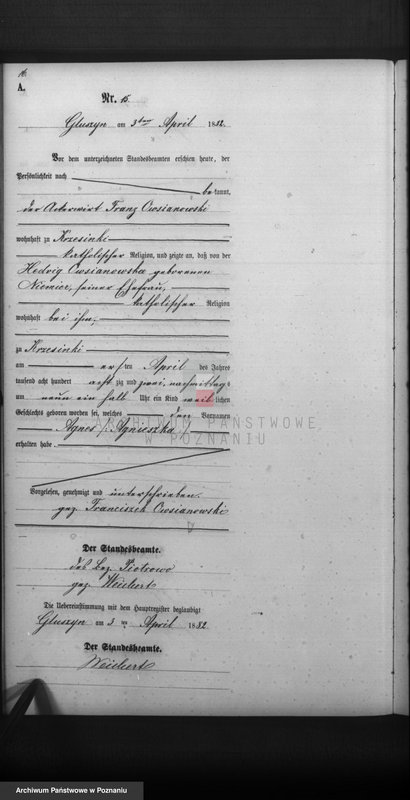 16.
A.
Nr. 15.
Gluszyn am 3ten April 1882.
Vor dem unterzeichneten Standesbeamten erschien heute, der
Persönlichkeit nach
bekannt,
der Ackerwirt Franz Owsianowski
wohnhaft zu Krzesinki
katholischer Religion, und zeigte an, daß von der
Hedwig Owsianowska geborenen
Niemier, seiner Ehefrau,
katholischer Religion
wohnhaft bei ihm,
zu Krzesinki
am ersten April des Jahres
tausend acht hundert achtzig und zwei, nachmittags
um neun ein halb Uhr ein Kind weiblichen
Geschlechts geboren worden sei, welches den Vornamen
Agnes /: Agnieszka :/
erhalten habe.
ARCHIWUM PAŃSTWOWE
W POZNANIU
Vorgelesen, genehmigt und unterschrieben.
gez. Franciszek Owsianowski
Der Standesbeamte.
des Bez. Piotrowo
gez. Weichert
Die Uebereinstimmung mit dem Hauptregister beglaubigt
Gluszyn am 3ten April 1882
Der Standesbeamte.
Weichert
Archiwum Państwowe w Poznaniu